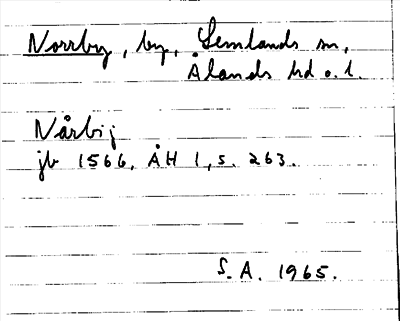 Norrby, by, Lemlands sn,
Ålands hd o. l.
Nårbij
jb 1566, ÅH 1, s. 263.
S. A. 1965.